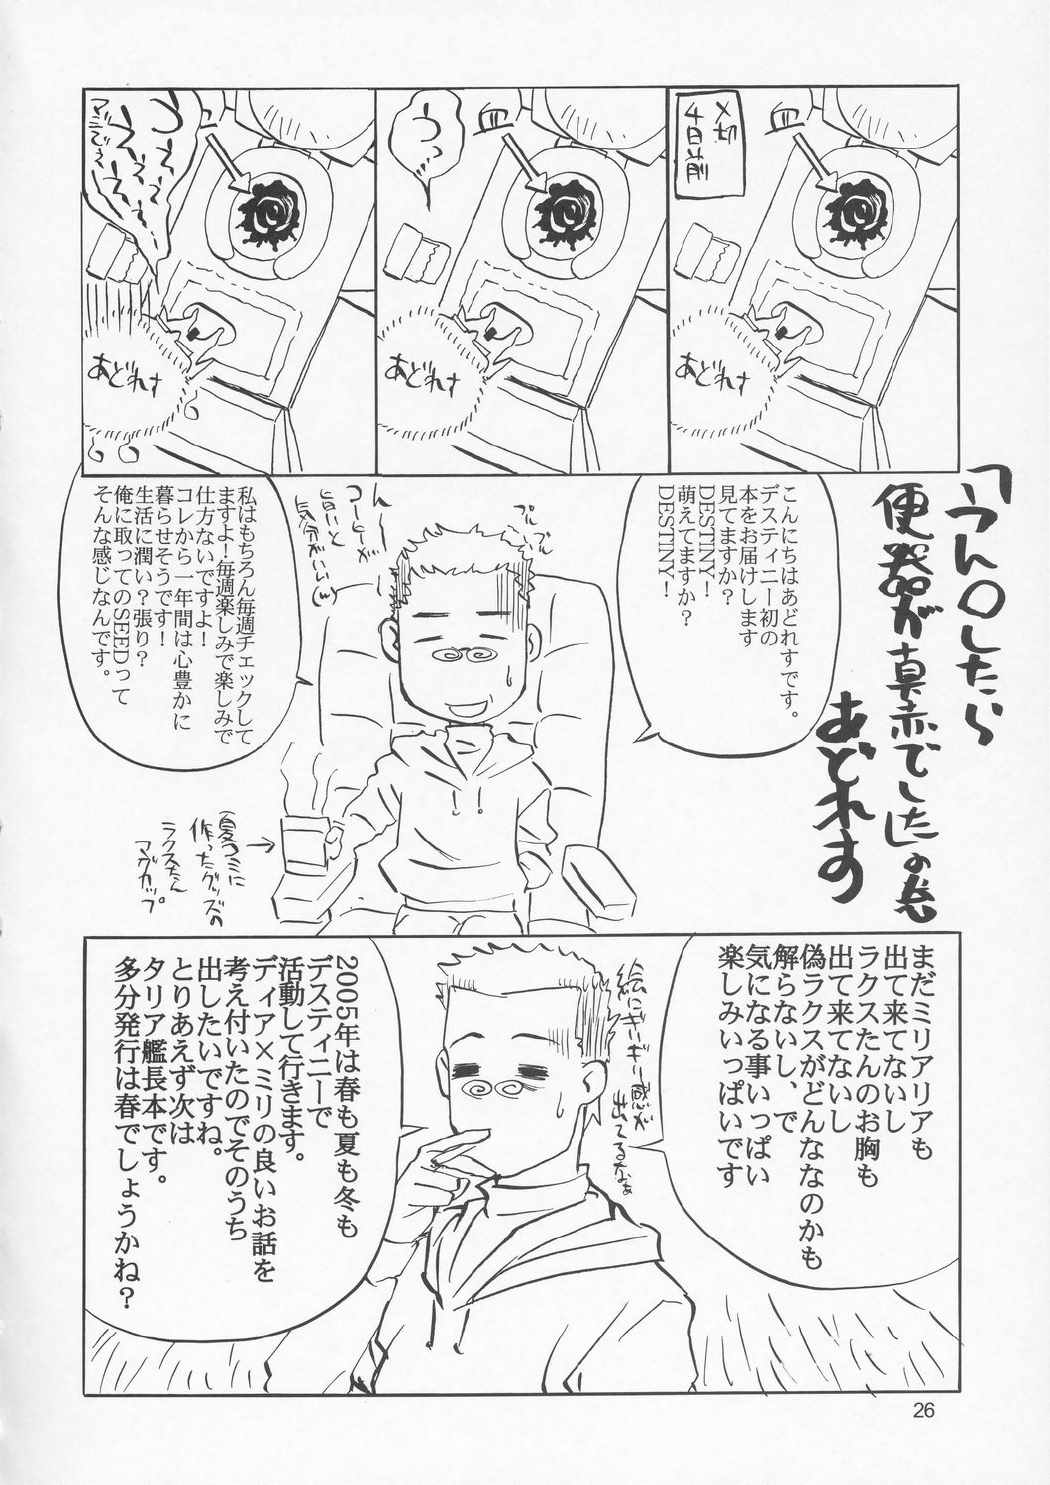 「う、うん○したら
便器が真赤でした」の巻
あどれす
〆切
4日前
血
あどれす
血
う?
あどれす
血
マジでぇ
あどれす
こんにちはあどれすです。
デスティニー初の
本をお届けします
見てますか?
DESTINY!
萌えてますか?
DESTINY!
プルプル
ん~
コーヒーが
旨いと
気分がいい
私はもちろん毎週チェックして
ますよ!毎週楽しみで楽しみで
仕方ないですよ!
コレから一年間は心豊かに
暮らせそうです!
生活に潤い?張り?
俺に取ってのSEEDって
そんな感じなんです。
夏コミに
作ったグッズの
ラクスたん
マグカップ。
まだミリアリアも
出て来てないし
ラクスたんのお胸も
出て来てないし
偽ラクスがどんななのかも
解らないし、で
気になる事いっぱい
楽しみいっぱいです
絵にギリギリ感が
出てるなぁ
2005年は春も夏も冬も
デスティニーで
活動して行きます。
ディア×ミリの良いお話を
考え付いたのでそのうち
出したいですね。
とりあえず次は
タリア艦長本です。
多分発行は春でしょうかね?
26